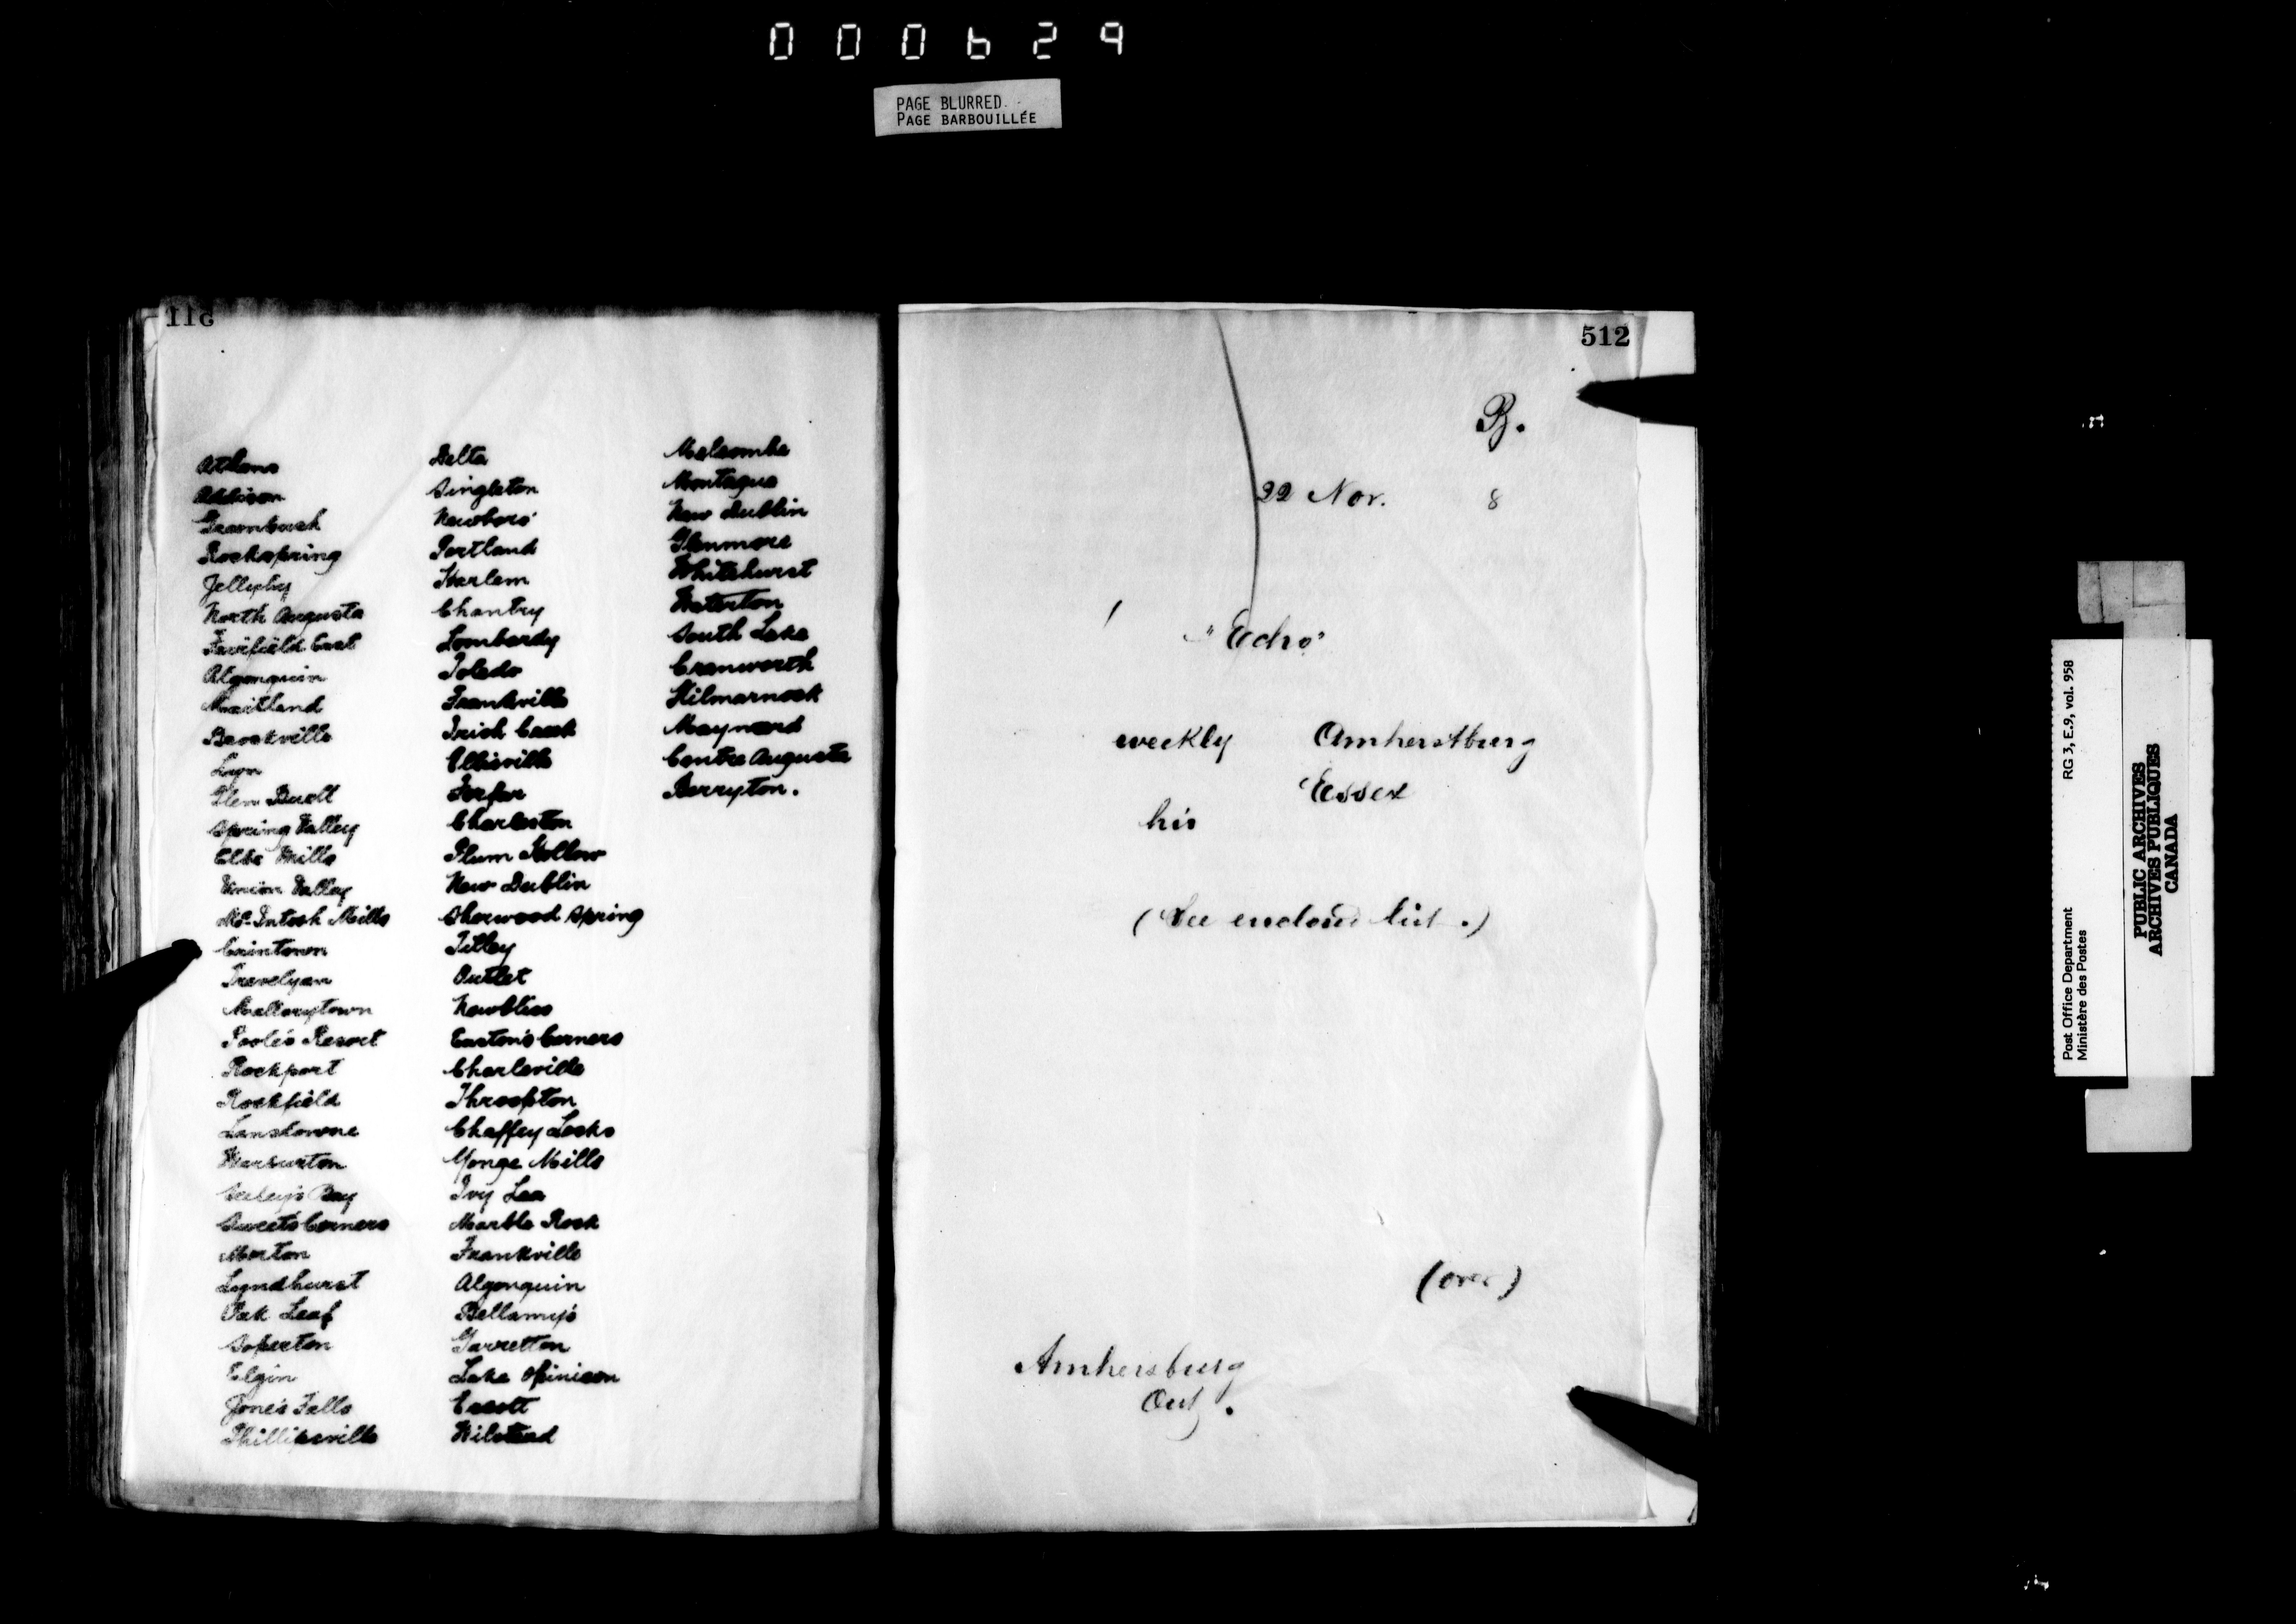 000629
PAGE BLURRED
PAGE BARBOUILLÉE
Athens
Addison
Greenbush
Rockspring
Jellyby
North Augusta
Fairfield East
Algonquin
Maitland
Brockville
Lyn
Glen Buell
Spring Valley
Elbe Mills
Union Valley
Mc.Intosh Mills
Caintown
Trevelyan
Mallorytown
Poole's Resort
Rockport
Rockfield
Lansdowne
Warburton
Seeley's Bay
Sweets Corners
Morton
Lyndhurst
Oak Leaf
Soperton
Elgin
Jone's Falls
Phillipsville
Delta
Singleton
Newboro'
Portland
Harlem
Chantry
Lombardy
Toledo
Frankville
Irish Creek
Elbisville
Forfar
Charleston
Plum Hollow
New Dublin
Sherwood Spring
Tilley
Outlet
Newbliss
Easton's Corners
Charleville
Throopton
Chaffey Locks
Yonge Mills
Ivy Lea
Marble Rock
Frankville
Algonquin
Bellamy's
Garretton
Lake Opinicon
Escott
Wilstead
Melcombe
Montague
New Dublin
Glenmore
Whitehurst
Waterton
South Lake
Cranworth
Kilmarnock
Maynard
Centre Augusta
Berryton.
512
B.
22 Nov. 8
"Echo"
weekly Amherstburg
Essex
his
(See enclosed list.)
(over)
Amhersburg
Ont.
Post Office Department
Ministère des Postes
RG 3, E.9, vol. 958
PUBLIC ARCHIVES
ARCHIVES PUBLIQUES
CANADA